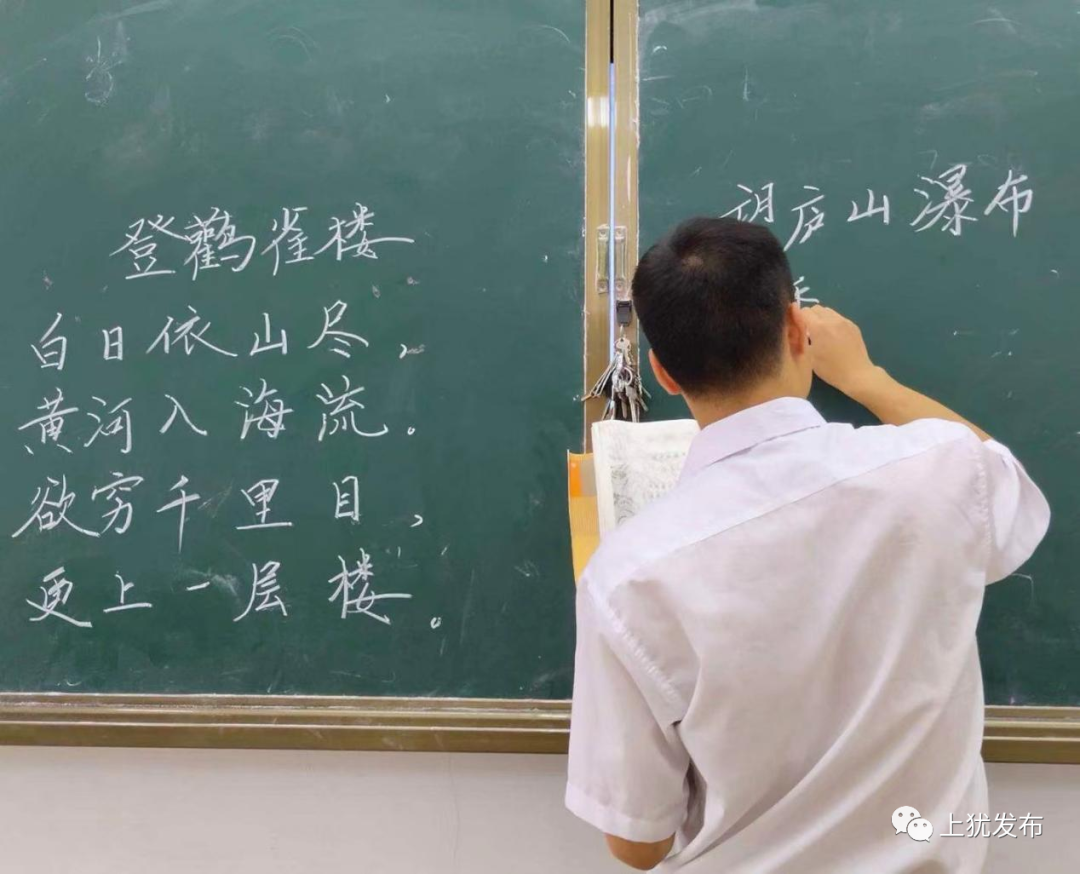 登鹳雀楼
白日依山尽，
黄河入海流。
欲穷千里目，
更上一层楼。
望庐山瀑布
上犹发布